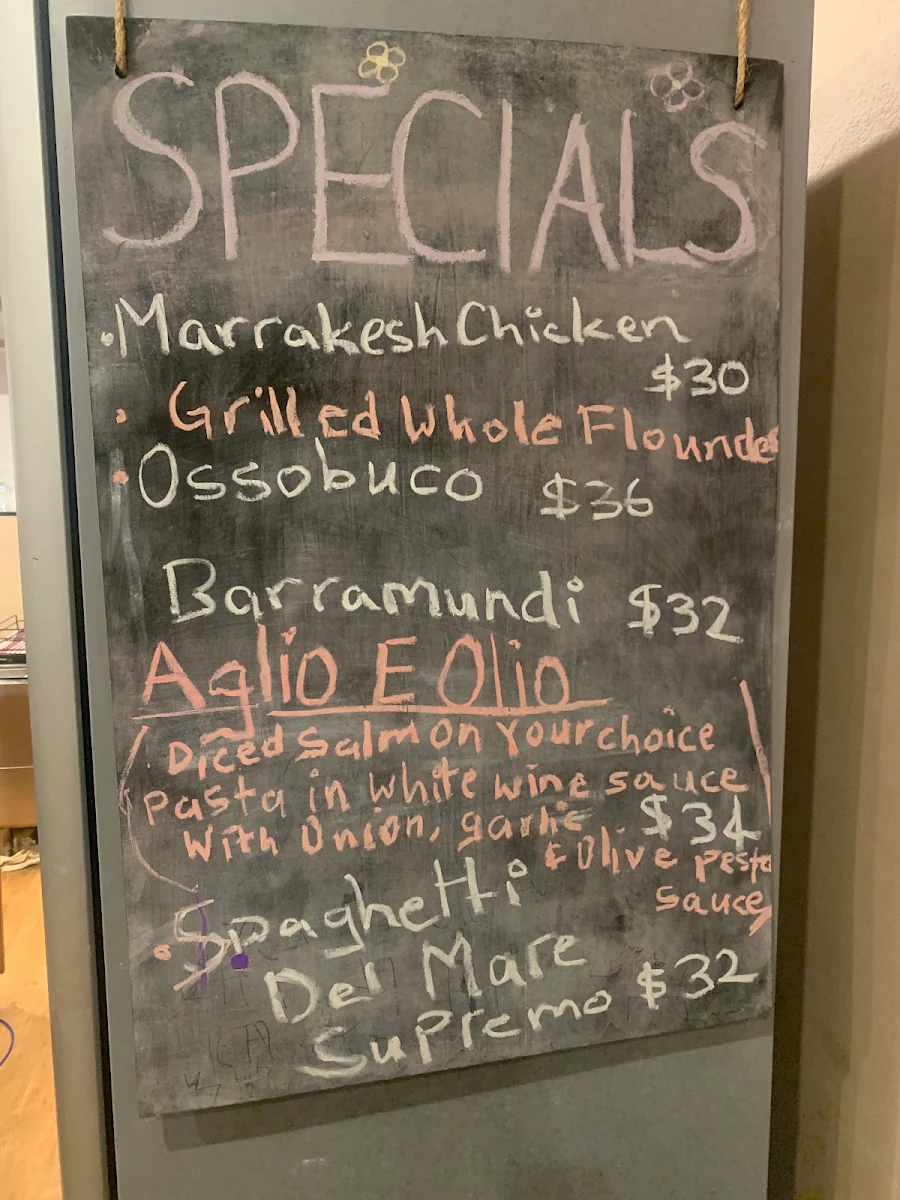 SPECIALS
• Marrakesh Chicken
$30
• Grilled Whole Flounder
• Ossobuco $36
Barramundi $32
Aglio E Olio
Diced Salmon Your choice
pasta in white wine sauce
With Onion, garlic $34
& Olive pesto
sauce
• Spaghetti
Del Mare
Supremo $32